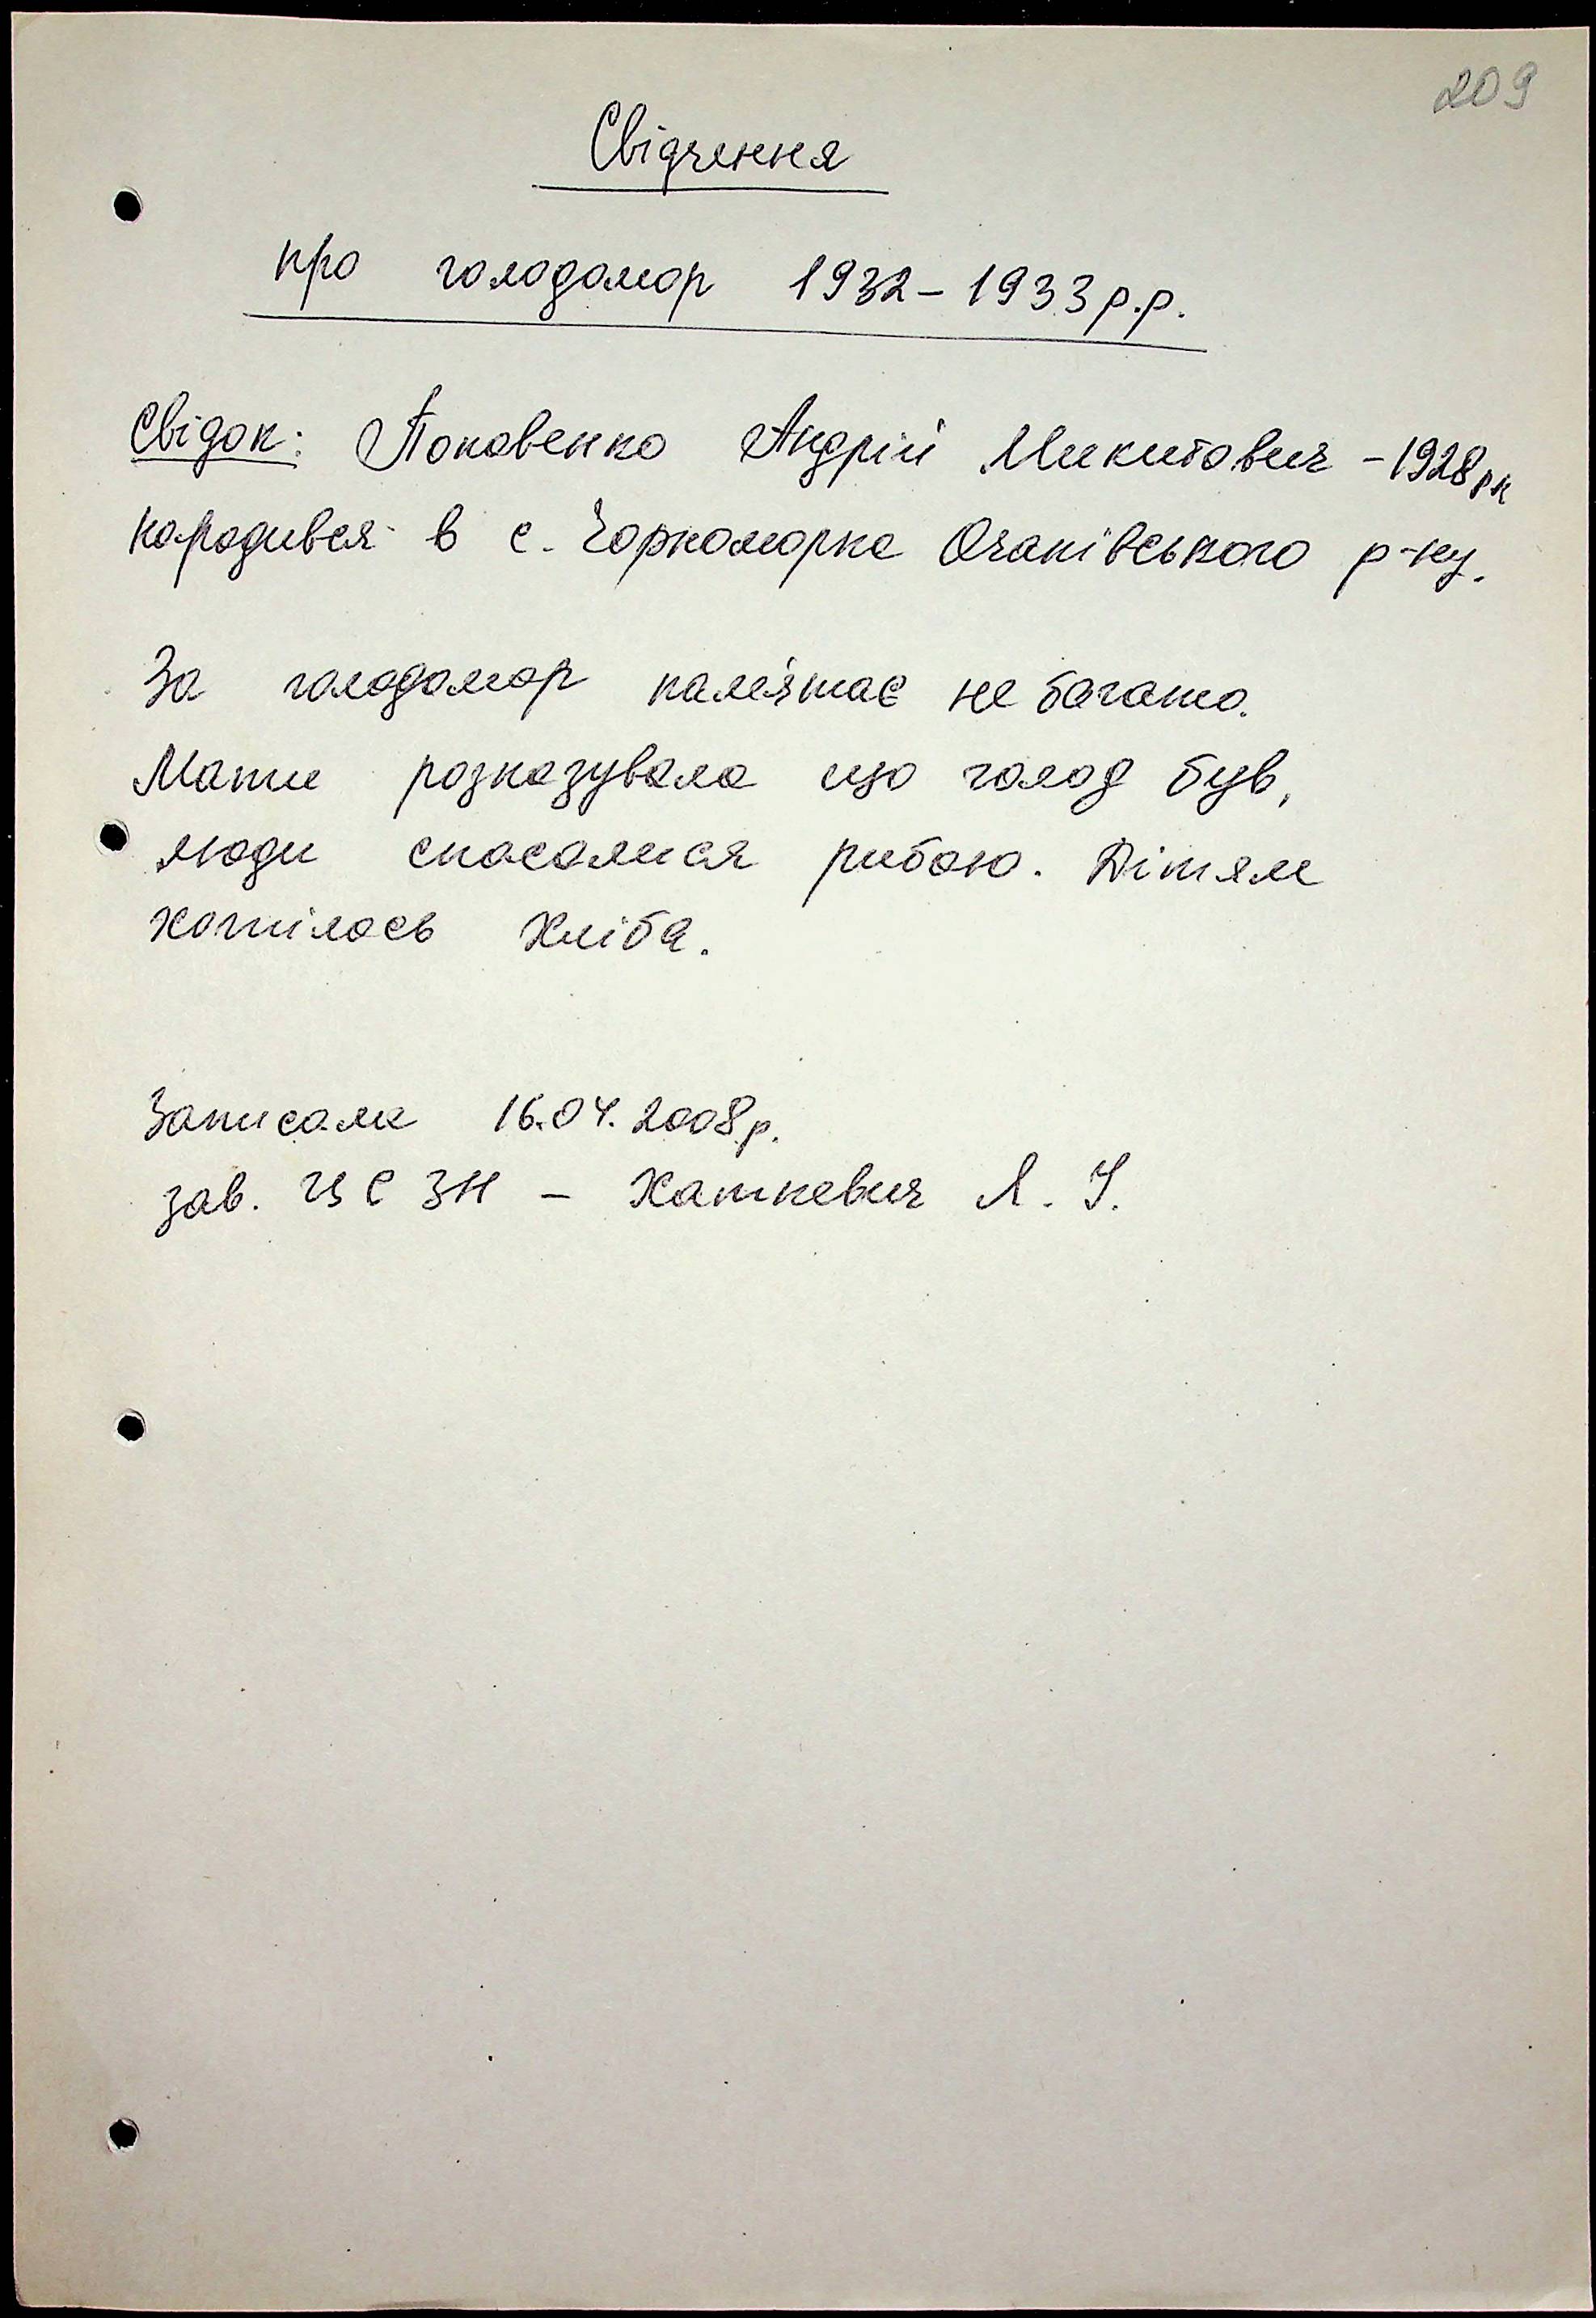 209
Свідчення
про голодомор 1932-1933 р.р.
Свідок: Поновенко Андрій Микитович - 1928 рн
народився в с. Чорноморка Очаківського р-ну.
За голодомор пам'ятає не багато.
Мати розказувала що голод був,
люди спасалися рибою. Дітям
хотілось хліба.
Записала 16.04.2008р.
зав. ЦСЗН - Хаткевич Л. І.